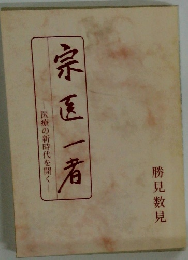 宗医一者
—医療の新時代を開く—
勝見数見